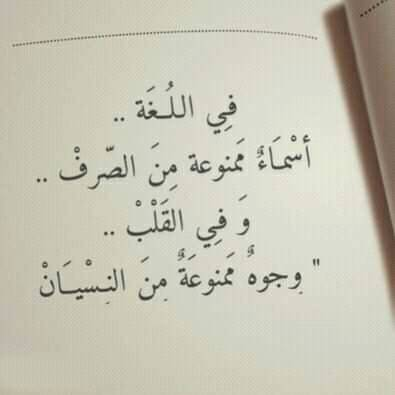 فِي اللُّغَة ..
أسْمَاءٌ مَمنوعة مِنَ الصّرفْ ..
وَ فِي القَلْبْ ..
" وِجوهٌ مَمنوعَةٌ مِنَ النِسْيَانْ